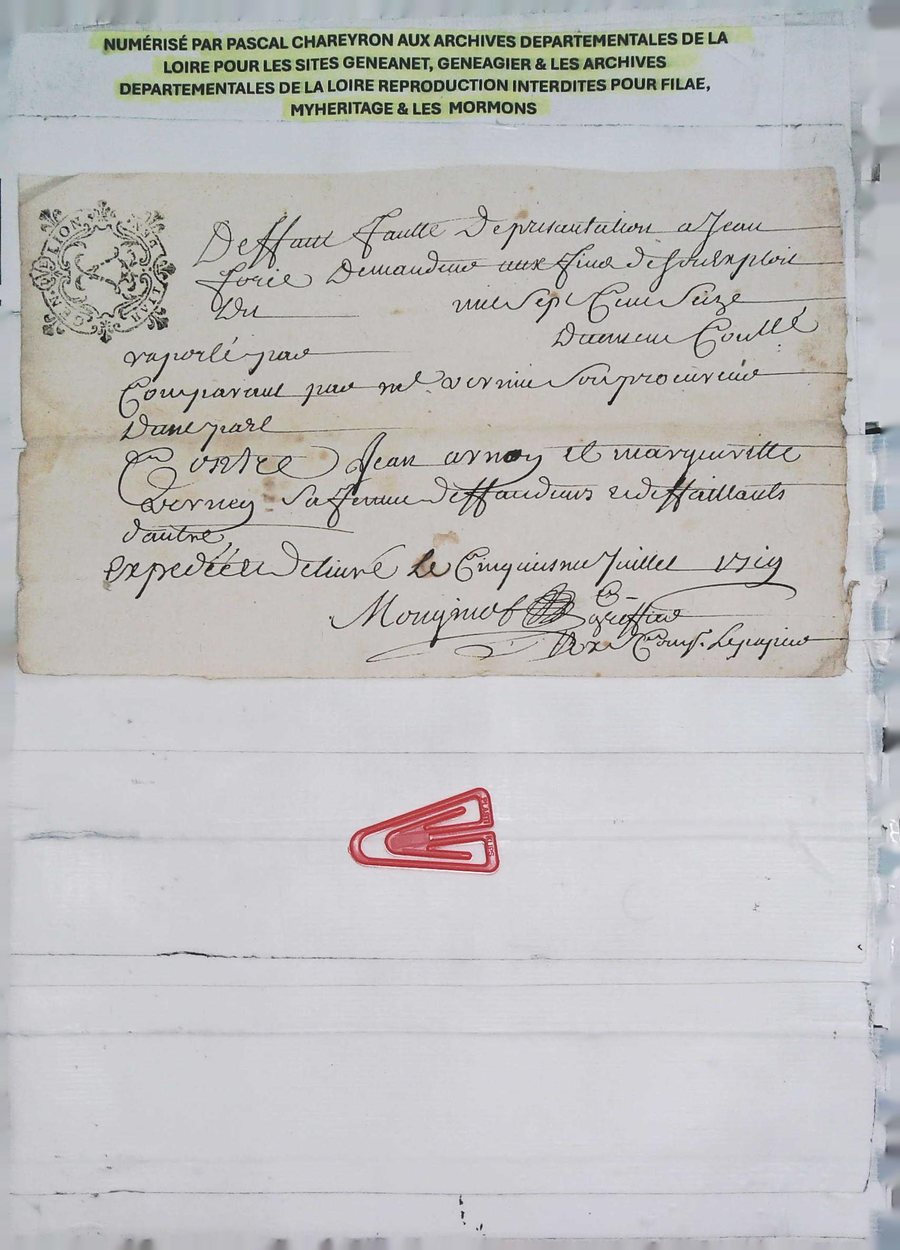 NUMÉRISÉ PAR PASCAL CHAREYRON AUX ARCHIVES DEPARTEMENTALES DE LA
LOIRE POUR LES SITES GENEANET, GENEAGIER & LES ARCHIVES
DEPARTEMENTALES DE LA LOIRE REPRODUCTION INTERDITES POUR FILAE,
MYHERITAGE & LES MORMONS
GEN DE LION
Deffaut faulte De presantation a Jean
Demandeur aux fins de son Exploit
Du mil Sept Cent Seize
raporté par
Comparant par me vernin Son procureur
Dune part
Contre Jean arnoy et margueritte
verney Sa femme deffandeurs et deffaillants
dautre
expediée et Delivré le Cinquiesme Juillet 1719
greffier